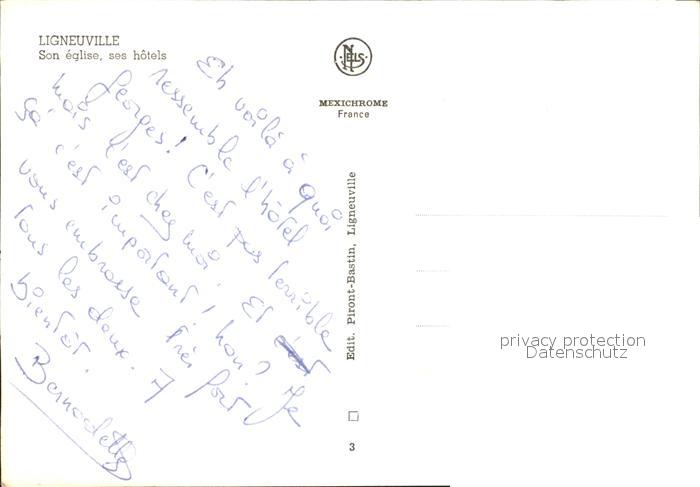 LIGNEUVILLE
Son église, ses hôtels
NELS
MEXICHROME
France
Edit. Piront-Bastin, Ligneuville
3
Eh voilà à quoi
ressemble l'hôtel
Georges! C'est pas terrible
mais c'est chez moi. Et
ça c'est important, non? Je
vous embrasse très fort
tous les deux. A
bientôt.
Bernadette
privacy protection
Datenschutz